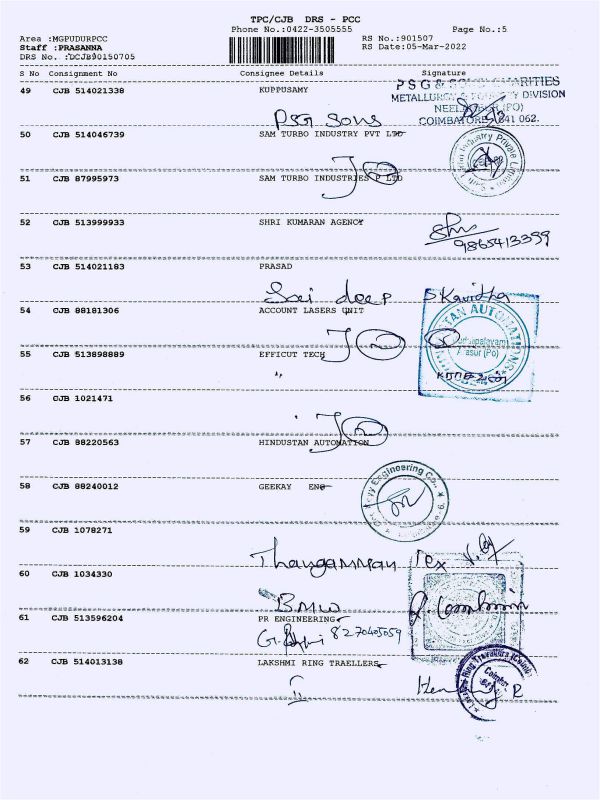 TPC/CJB DRS - PCC
Phone No.:0422-3505555 Page No.:5
Area :MGPUDURPCC RS No.:901507
Staff :PRASANNA RS Date:05-Mar-2022
DRS No. :DCJB90150705
S No Consignment No Consignee Details Signature
49 CJB 514021338 KUPPUSAMY
PSG & SONS CHARITIES
METALLURGY & FOUNDRY DIVISION
NEELAMBUR (PO)
COIMBATORE 641 062.
PSG Sons
50 CJB 514046739 SAM TURBO INDUSTRY PVT LTD
51 CJB 87995973 SAM TURBO INDUSTRIES P LTD
52 CJB 513999933 SHRI KUMARAN AGENCY
9865413399
53 CJB 514021183 PRASAD
Sai deep S Kavitha
54 CJB 88181306 ACCOUNT LASERS UNIT
55 CJB 513898889 EFFICUT TECH
56 CJB 1021471
57 CJB 88220563 HINDUSTAN AUTOMATION
58 CJB 88240012 GEEKAY ENG
59 CJB 1078271
Thangamman Tex
60 CJB 1034330
BMW
61 CJB 513596204 PR ENGINEERING
8270405059
62 CJB 514013138 LAKSHMI RING TRAELLERS